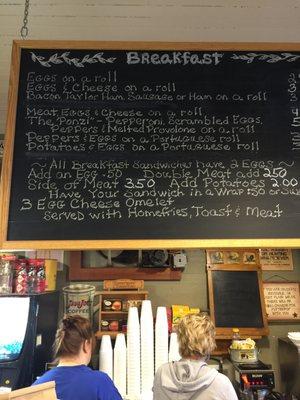 Breakfast
Eggs on a roll
Eggs & Cheese on a roll
Bacon, Taylor Ham, Sausage or Ham on a roll
Meat, Eggs & Cheese on a roll
The "Ponzi" - Pepperoni, Scrambled Eggs,
Peppers & Melted Provolone on a roll
Peppers & Eggs on a Portuguese roll
Potatoes & Eggs on a Portuguese roll
~ All Breakfast Sandwiches have 2 Eggs ~
Add an Egg .50 Double Meat add 2.50
Side of Meat 3.50 Add Potatoes 2.00
Have Your Sandwich in a Wrap .50
3 Egg Cheese Omelet
served with Homefries, Toast & Meat
COFFEE